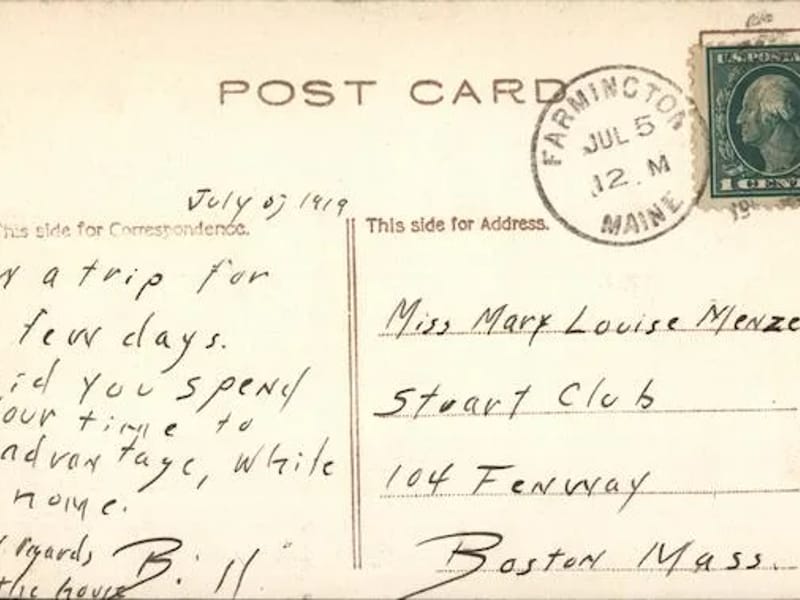 POST CARD
FARMINGTON
JUL 5
12. M
MAINE
U.S. POSTA
1 CENT
July 5, 1919
This side for Correspondence.
This side for Address.
n a trip for
few days.
id you spend
our time to
advantage, while
home.
regards
the house
Bill
Miss Mary Louise Menze
Stuart Club
104 Fenway
Boston Mass.